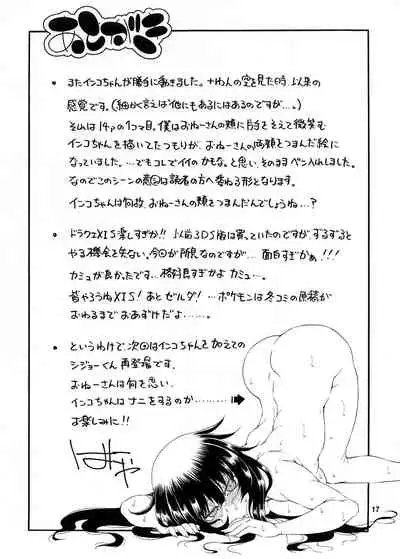 あとがき
● またインコちゃんが勝手に動きました。十わんの空を見た時、以来の
感覚です。(細かく言えば他にもあるにはあるのですが…。)
それは14Pの1コマ目。僕はおねーさんの頬に片手をそえて微笑む
インコちゃんを描いてたつもりが、おねーさんの両頬をつまんだ絵に
なっていました。…でもコレでイイのかもな。と思い、そのままペン入れしました。
なのでこのシーンの意図は読者の方へ委ねる形となります。
インコちゃんは何故、おねーさんの頬をつまんだんでしょうね…?
● ドラクエXIS楽しすぎか!! 以前3DS版は買っていたのですが、ずるずると
やる機会を失ない。今回が所見なのですが… 面白すぎかぁ!!!
カミュが良かったです…格好良すぎかよカミュ…。
皆やろうねXIS! あとゼルダ! …ポケモンは冬コミの原稿が
おわるまでおあずけだよ……。
● というわけで、次回はインコちゃんを加えての
シジョーくん再登場です。
おねーさんは何を思い、
インコちゃんはナニをするのか………
お楽しみに!!
17